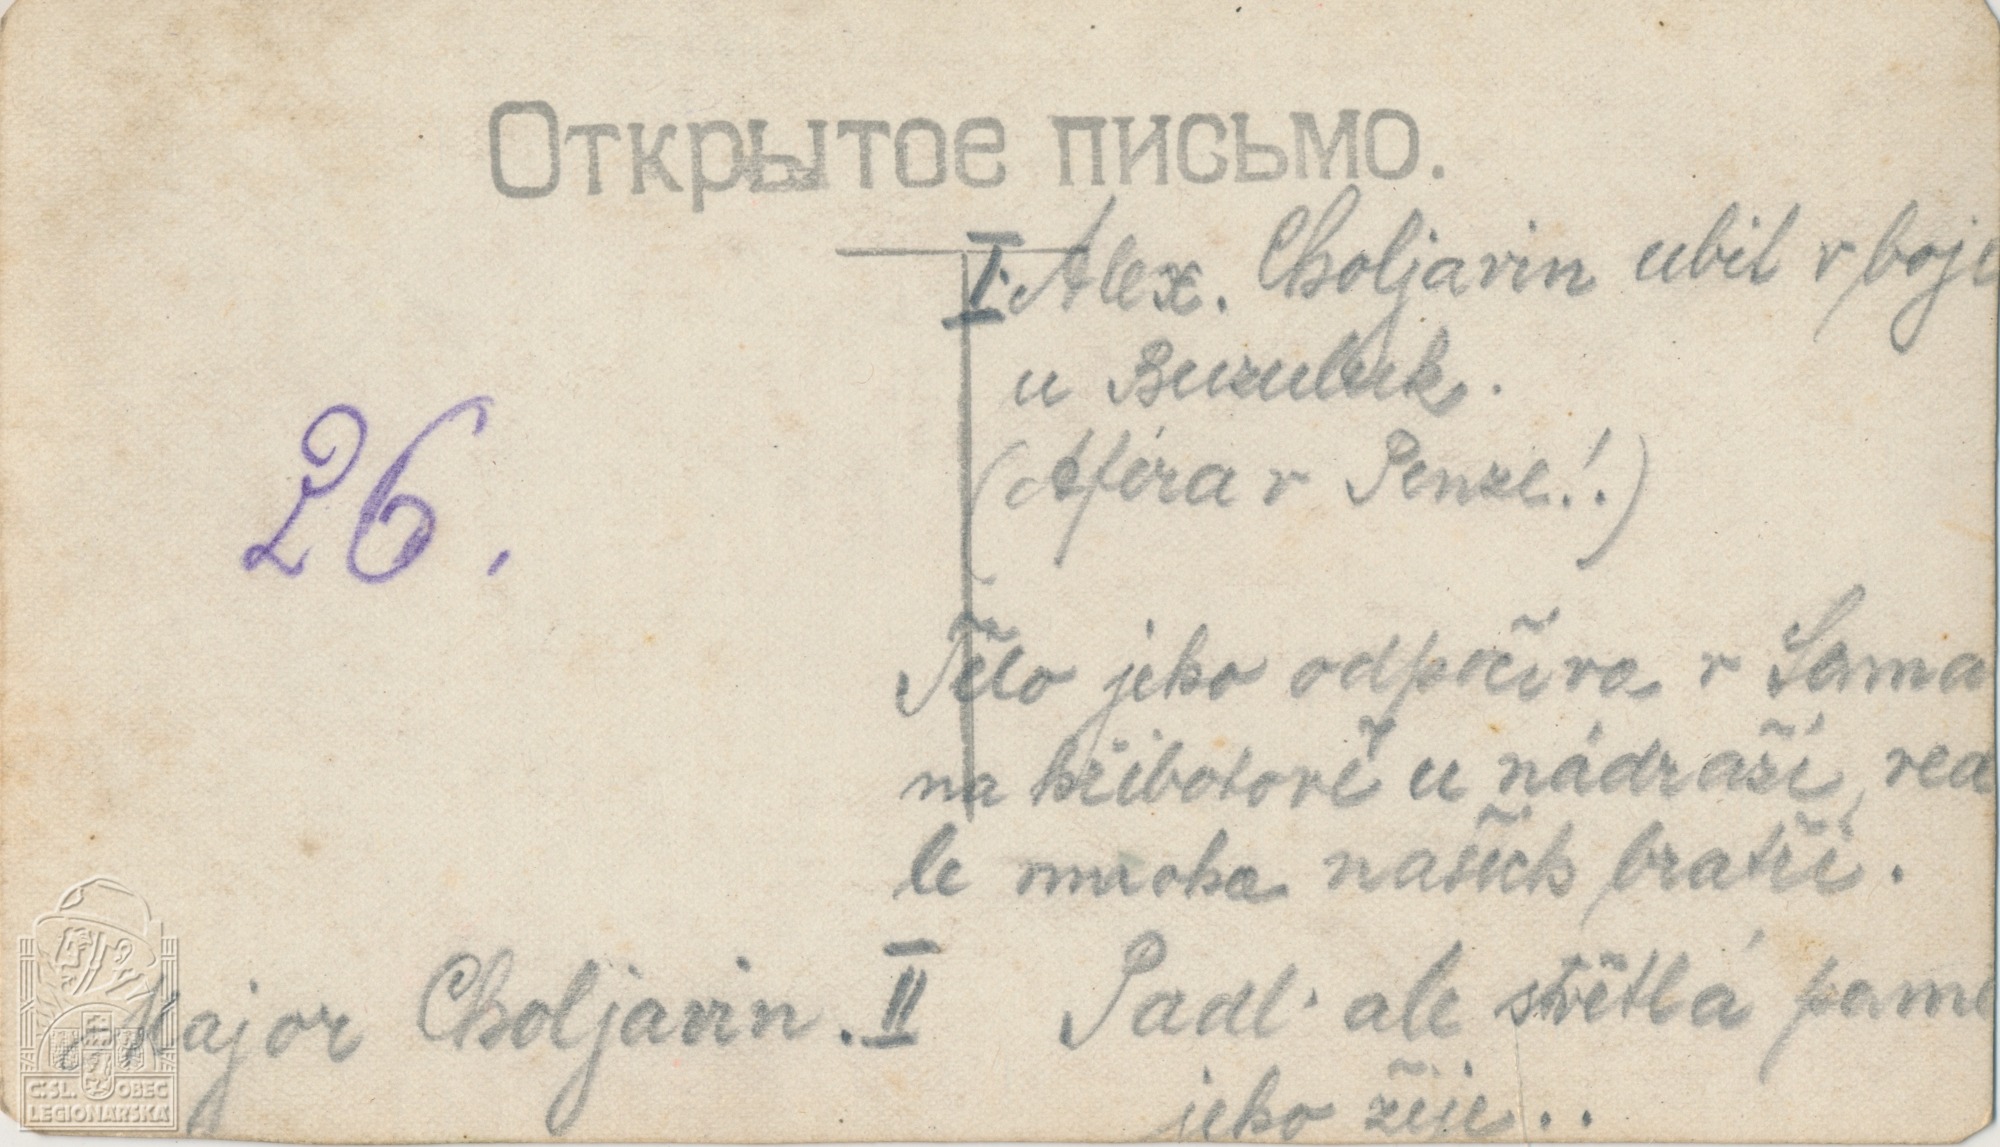 Открытое письмо.
I. Alex. Choljavin ubit v boje
u Buzuluk.
(Aféra v Penze!.)
26.
Tělo jeho odpočíva v Sama
na hřibotově u nádraží, ved
le mnoha našich bratří.
Major Choljavin. II
Padl ale světlá pamě
jeho žije..
Č:SL. OBEC
LEGIONÁŘSKÁ